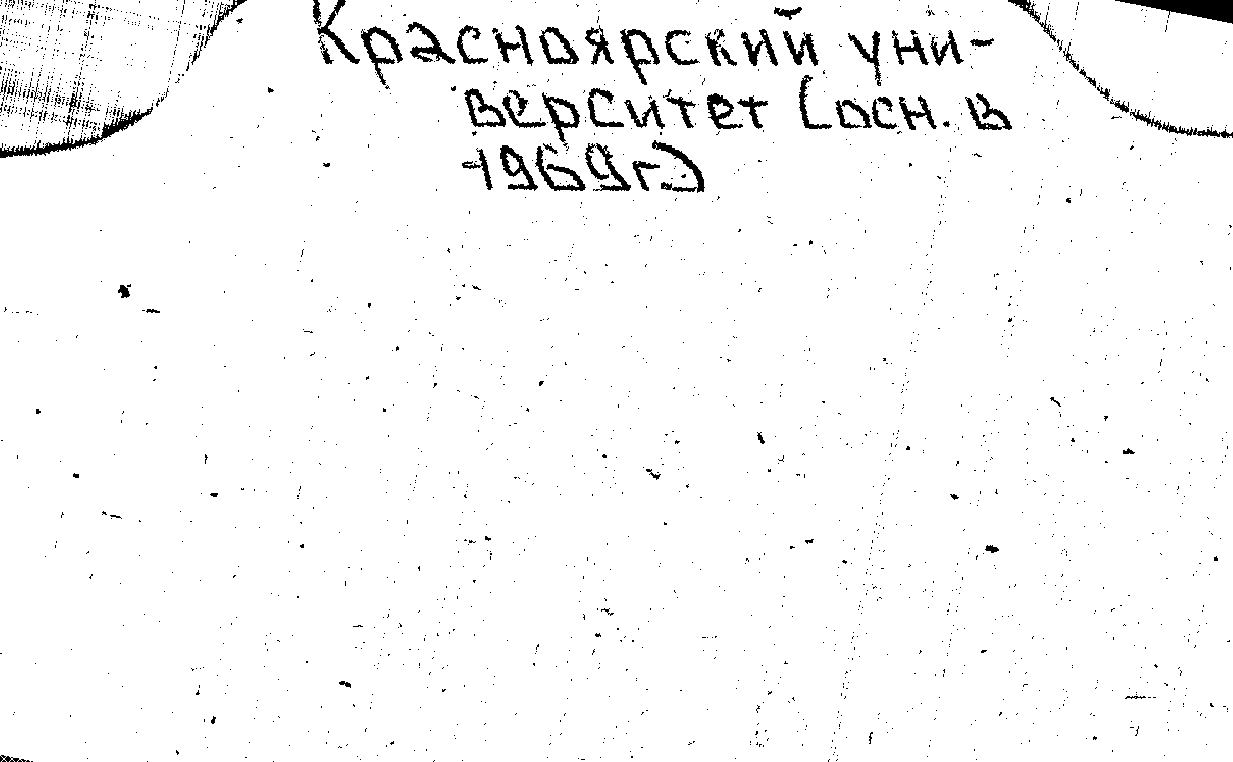 Красноярский уни-
верситет (осн. в
1969г.)